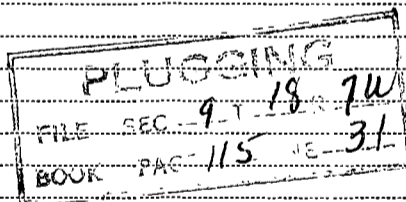 PLUGGING
FILE SEC 9 T 18 R 7W
BOOK PAGE 115 LINE 31